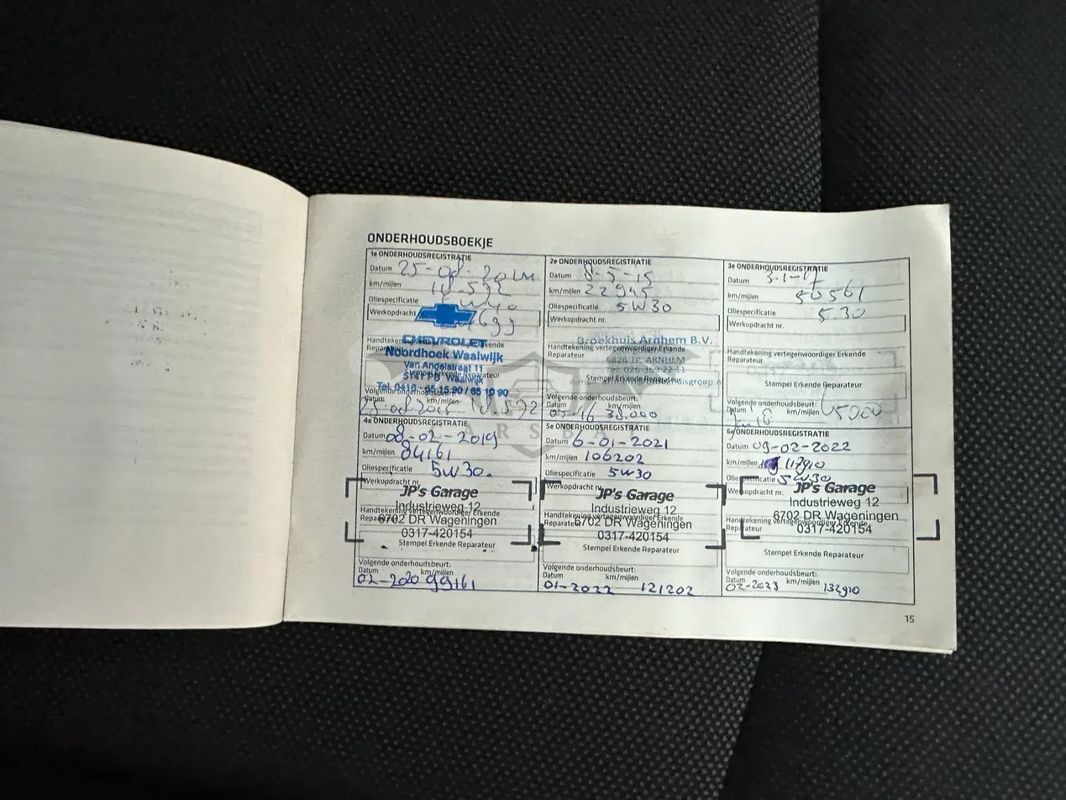 ONDERHOUDSBOEKJE
1e ONDERHOUDSREGISTRATIE
Datum 25-08-2014
km/mijlen
Oliespecificatie
Werkopdracht
CHEVROLET
Noordhoek Waalwijk
Van Andelstraat 11
5141 PB Waalwijk
Tel. 0416 - 65 15 90 / 65 10 90
2e ONDERHOUDSREGISTRATIE
Datum 8-5-15
km/mijlen 22945
Oliespecificatie 5W30
Werkopdracht nr.
Handtekening vertegenwoordiger Erkende
Reparateur
Broekhuis Arnhem B.V.
ARNHEM
Stempel Erkende Reparateur
Volgende onderhoudsbeurt:
Datum km/mijlen
05-16 38.000
3e ONDERHOUDSREGISTRATIE
Datum 3-1-17
km/mijlen
Oliespecificatie 5.30
Werkopdracht nr.
Handtekening vertegenwoordiger Erkende
Reparateur
Stempel Erkende Reparateur
Volgende onderhoudsbeurt:
Datum km/mijlen
4e ONDERHOUDSREGISTRATIE
Datum 08-02-2019
km/mijlen 84161
Oliespecificatie 5W30.
Werkopdracht nr.
JP's Garage
Industrieweg 12
6702 DR Wageningen
0317-420154
Stempel Erkende Reparateur
Volgende onderhoudsbeurt:
Datum km/mijlen
02-2020 99161
5e ONDERHOUDSREGISTRATIE
Datum 6-01-2021
km/mijlen 106202
Oliespecificatie 5W30
Werkopdracht nr.
JP's Garage
Industrieweg 12
6702 DR Wageningen
0317-420154
Stempel Erkende Reparateur
Volgende onderhoudsbeurt:
Datum km/mijlen
01-2022 121202
6e ONDERHOUDSREGISTRATIE
Datum 09-02-2022
km/mijlen 117910
Oliespecificatie 5W30
Werkopdracht nr.
JP's Garage
Industrieweg 12
6702 DR Wageningen
0317-420154
Stempel Erkende Reparateur
Volgende onderhoudsbeurt:
Datum km/mijlen
02-2023 132910
15